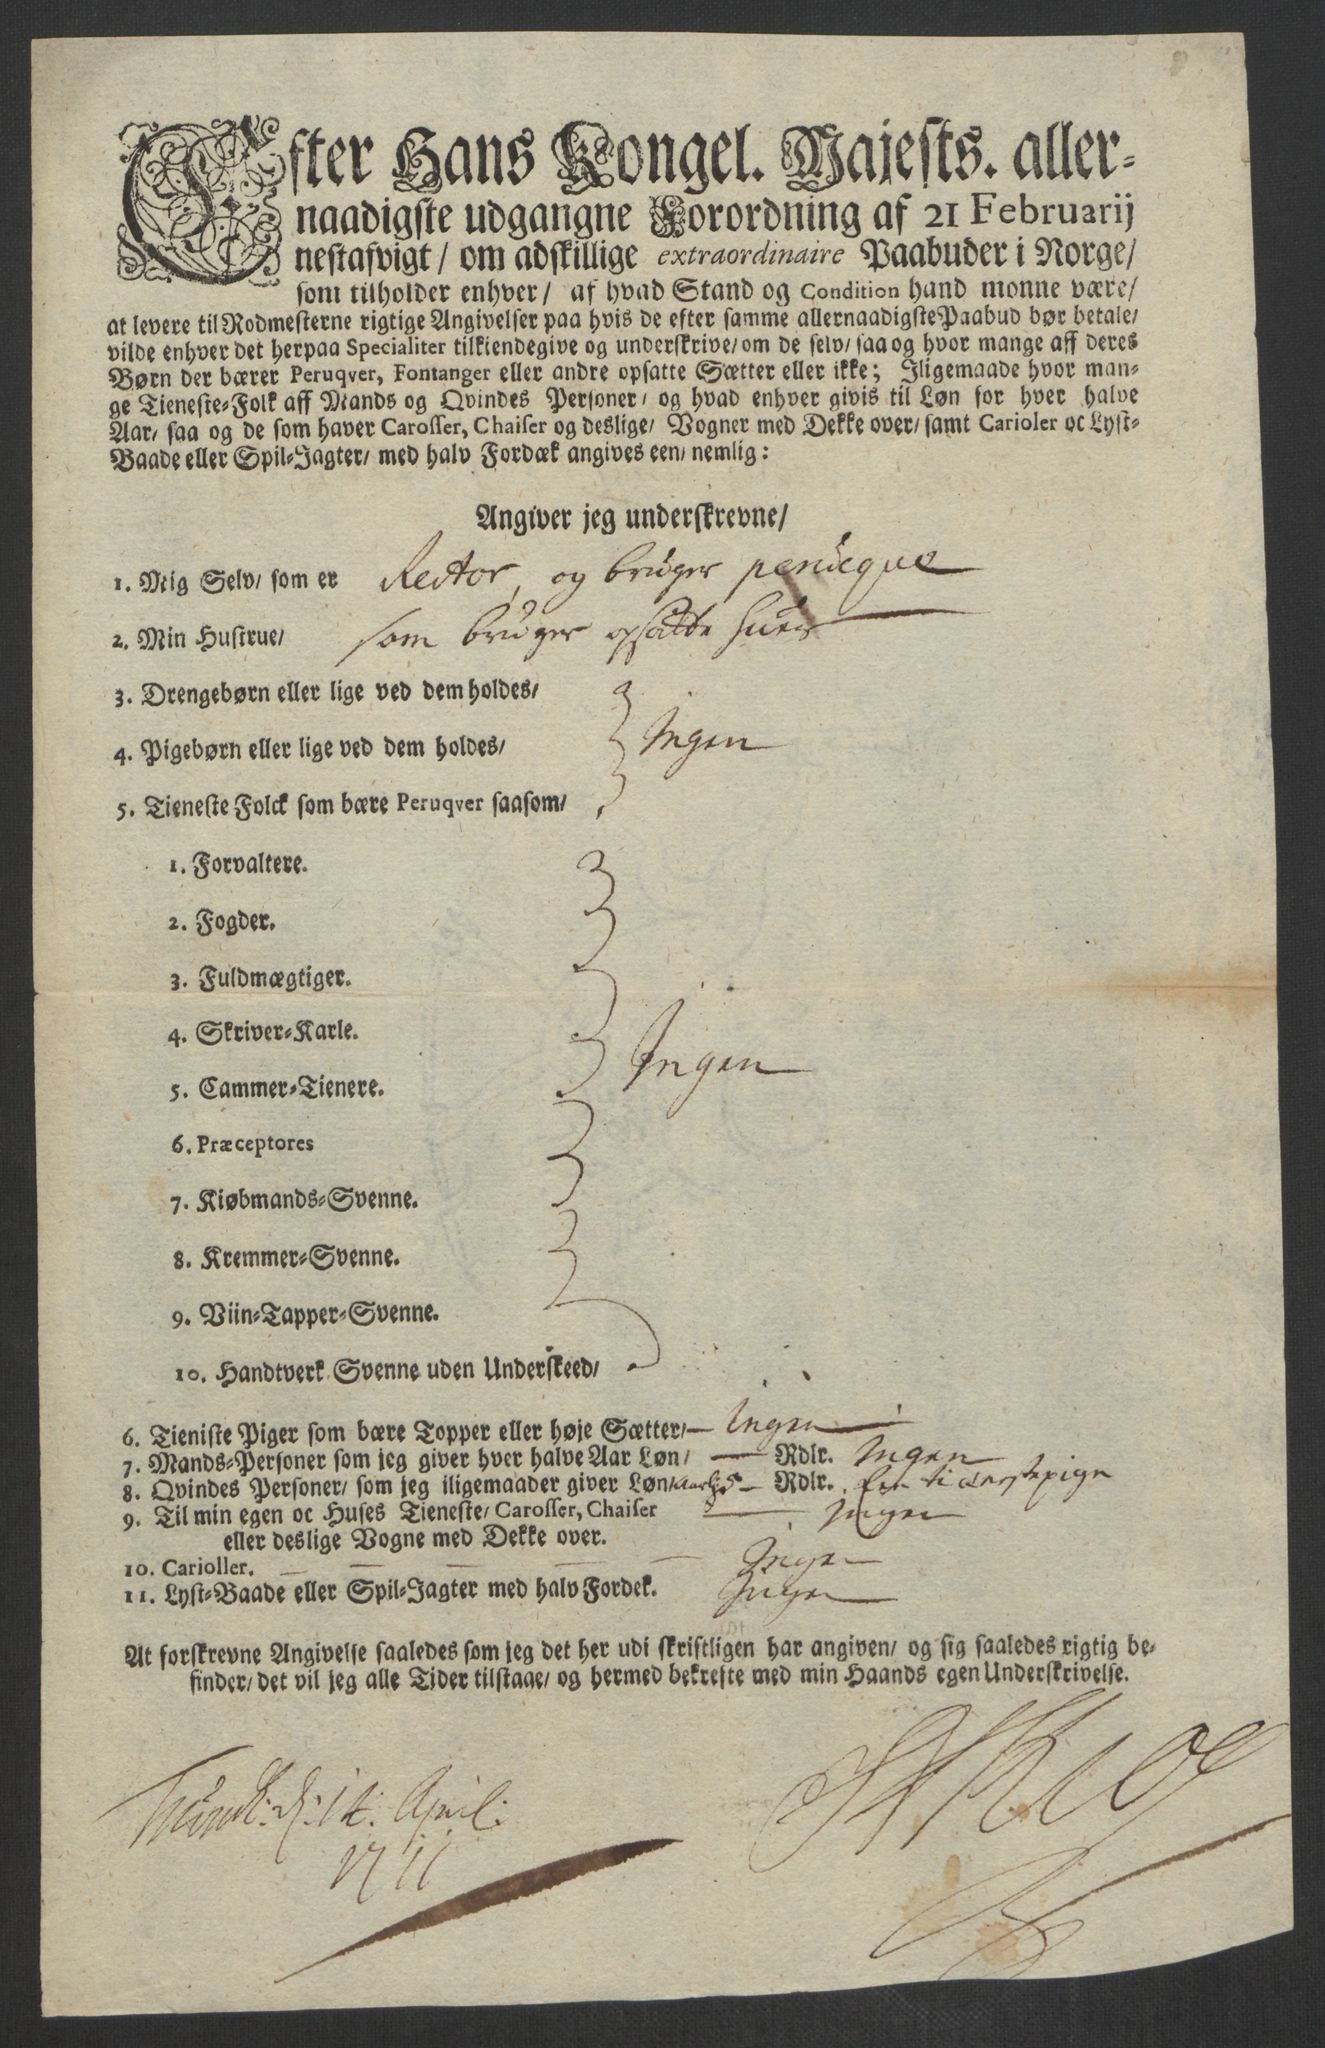 Efter Hans Kongel. Majests. aller-
naadigste udgangne Forordning af 21 Februarij
nestafvigt/ om adskillige extraordinaire Paabuder i Norge/
som tilholder enhver/ af hvad Stand og Condition hand monne være/
at levere til Rodmesterne rigtige Angivelser paa hvis de efter samme allernaadigste Paabud bør betale/
vilde enhver det herpaa Specialiter tilkiendegive og underskrive/ om de selv/ saa og hvor mange aff deres
Børn der bærer Peruqver, Fontanger eller andre opsatte Sætter eller ikke; Iligemaade hvor man-
ge Tieneste-Folk aff Mands og Qvindes Personer/ og hvad enhver givis til Løn for hver halve
Aar/ saa og de som haver Carosser, Chaiser og deslige/ Vogner med Dekke over/ samt Carioler oc Lyst-
Baade eller Spil-Jagter/ med halv Fordæk angives een/ nemlig:
Angiver jeg underskrevne/
1. Mig Selv/ som er Rector, og bruger perucque
2. Min Hustrue/ som bruger opsatte huer
3. Drengebørn eller lige ved dem holdes/
4. Pigebørn eller lige ved dem holdes/ Ingen
5. Tieneste Folck som bære Peruqver saasom/
1. Forvaltere.
2. Fogder.
3. Fuldmægtiger.
4. Skriver-Karle.
5. Cammer-Tienere. Ingen
6. Præceptores
7. Kiøbmands-Svenne.
8. Kremmer-Svenne.
9. Viin-Tapper-Svenne.
10. Handtverk Svenne uden Underskeed/
6. Tieniste Piger som bære Topper eller høje Sætter/ — Ingen
7. Mands-Personer som jeg giver hver halve Aar Løn/ — Rdlr. Ingen
8. Qvindes Personer/ som jeg iligemaader giver Løn/ 5 — Rdlr. En tienestepige
9. Til min egen oc Huses Tieneste/ Carosser, Chaiser — Ingen
eller deslige Vogne med Dekke over.
10. Carioller. — — — — Ingen
11. Lyst-Baade eller Spil-Jagter med halv Fordek. Ingen
At forskrevne Angivelse saaledes som jeg det her udi skriftligen har angiven/ og sig saaledes rigtig be-
finder/ det vil jeg alle Tider tilstaae/ og hermed bekrefte med min Haands egen Underskrivelse.
Trundh: d: 14. April:
1711